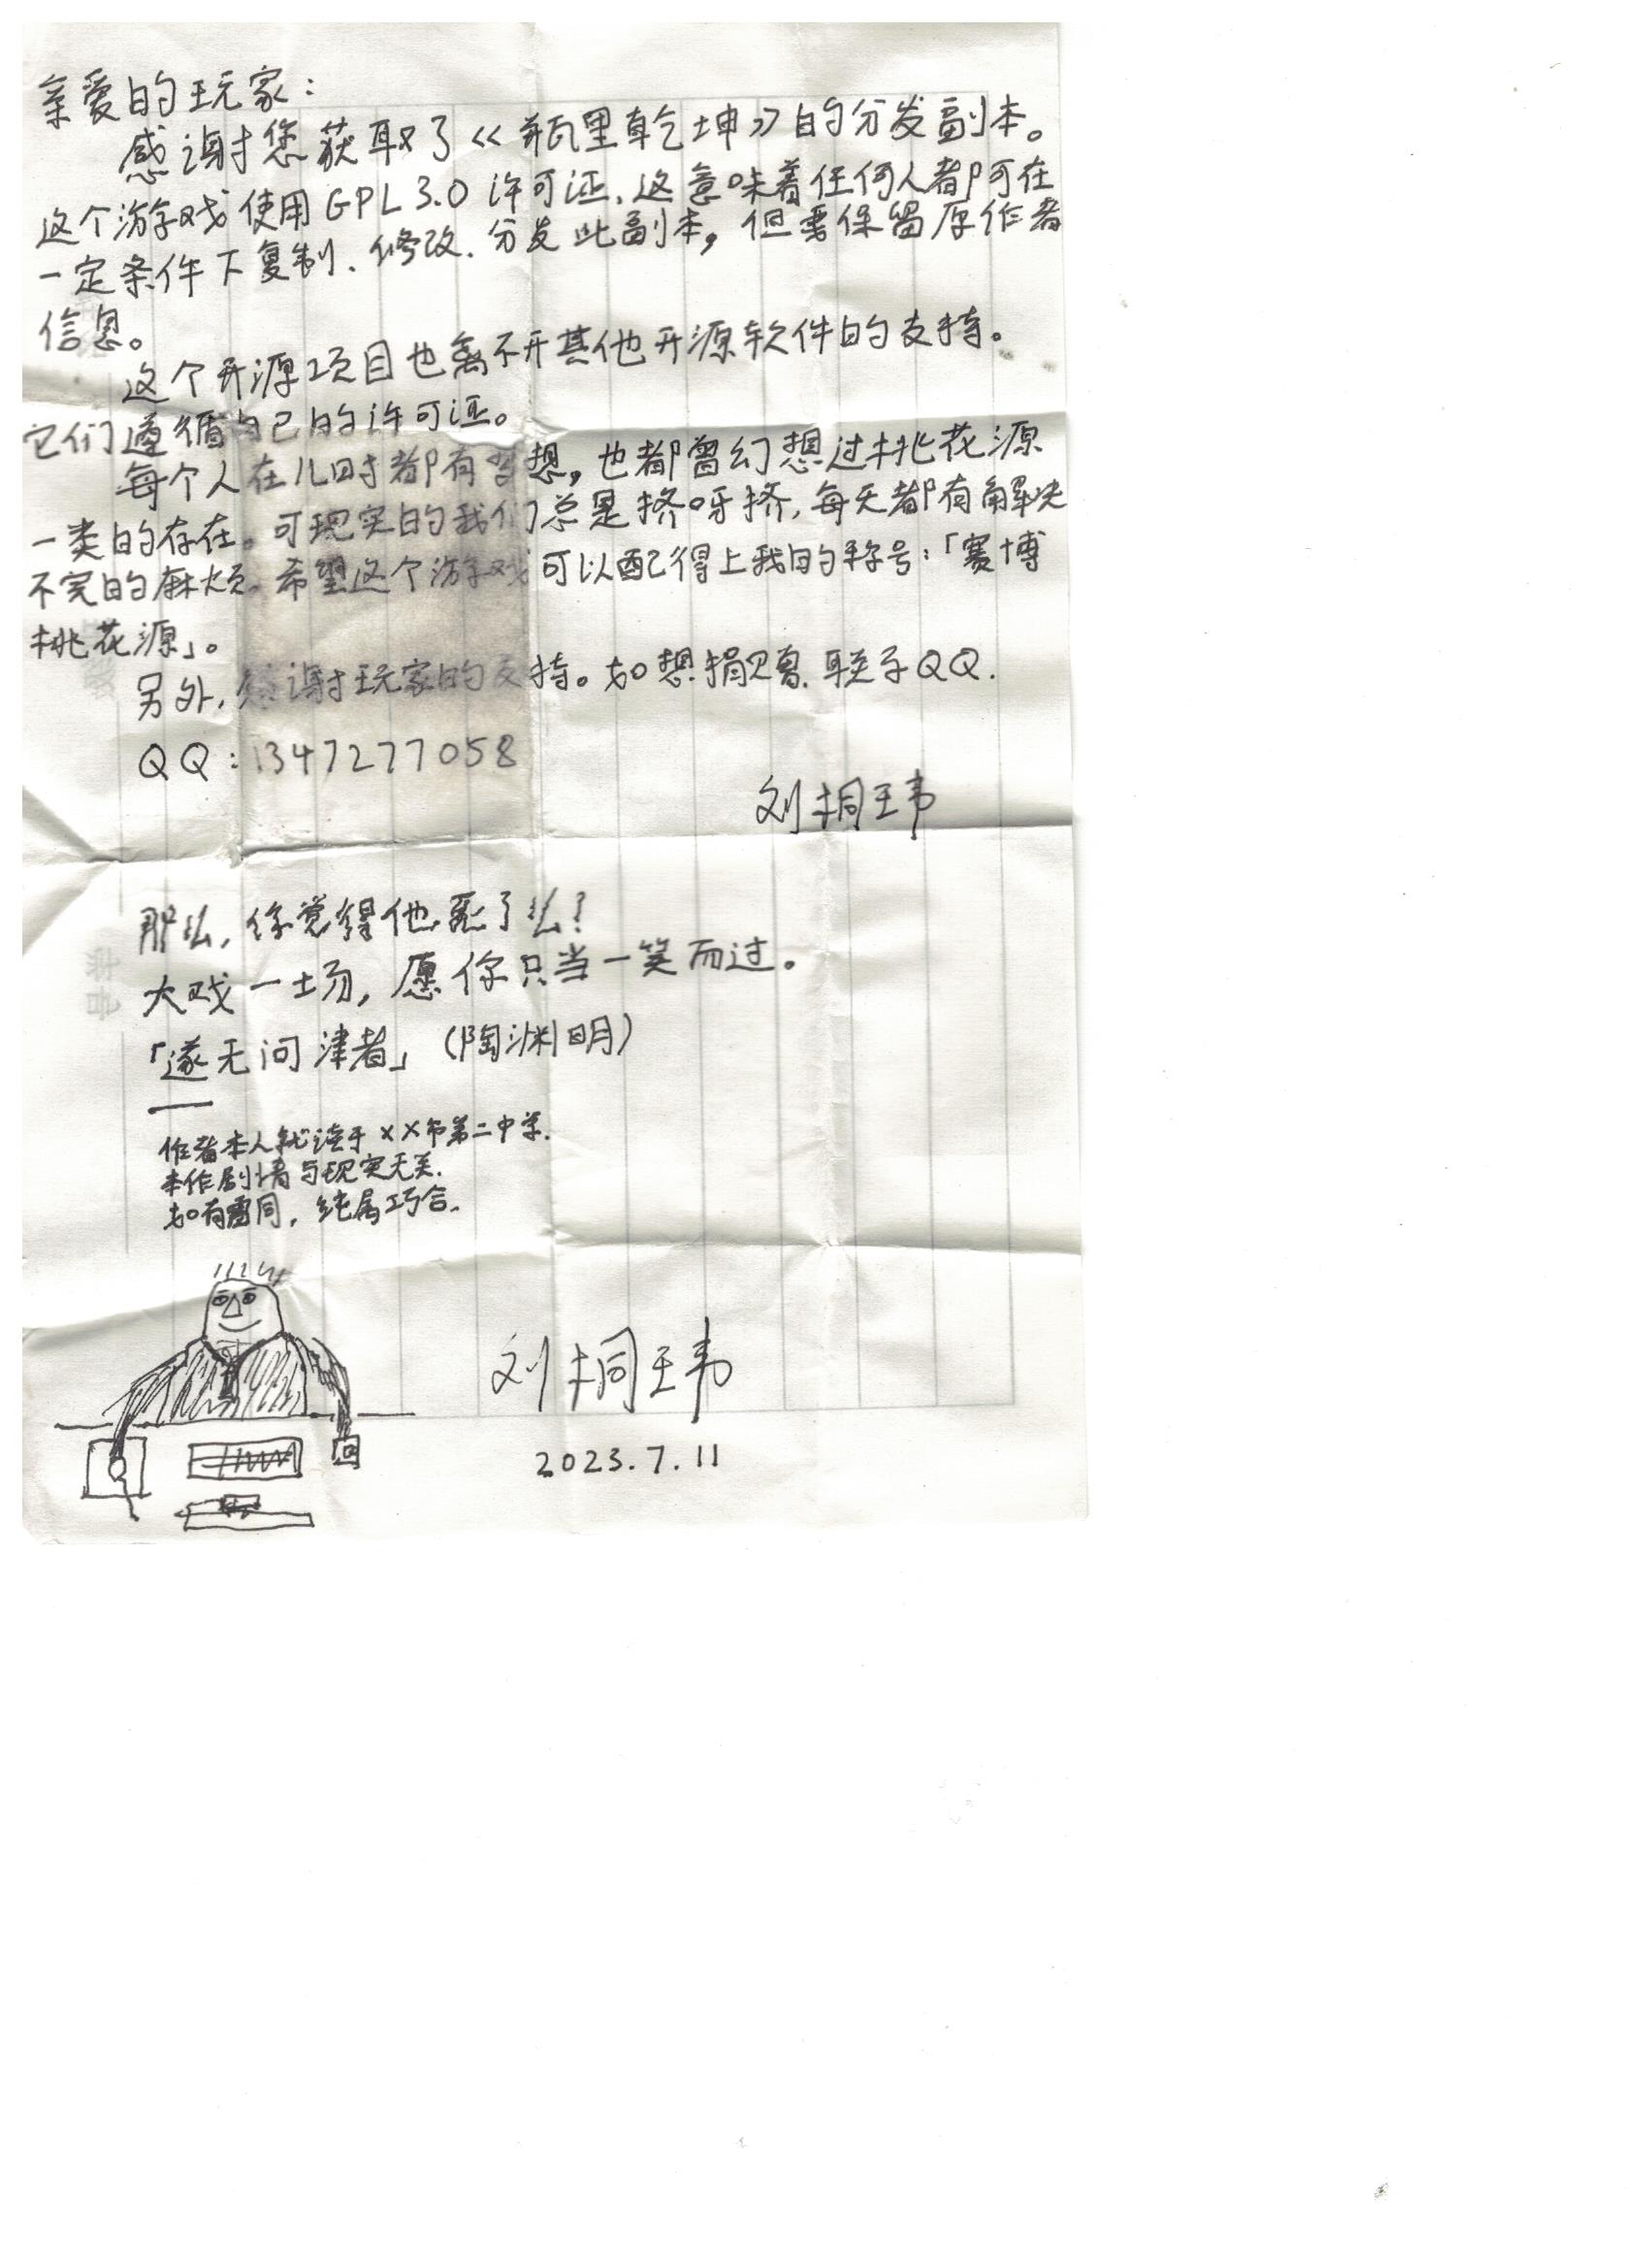 亲爱的玩家：
感谢您获取了《瓶里乾坤》的分发副本。
这个游戏使用GPL3.0许可证，这意味着任何人都可在
一定条件下复制、修改、分发此副本，但需保留原作者
信息。
这个开源项目也离不开其他开源软件的支持。
它们遵循自己的许可证。
每个人在儿时都有梦想，也都曾幻想过桃花源
一类的存在。可现实的我们总是挤呀挤，每天都有解决
不完的麻烦。希望这个游戏可以配得上我的称号：「赛博
桃花源」。
另外，感谢玩家的支持。如想捐赠，联系QQ.
QQ：1347277058
刘桐玮
那么，你觉得他死了么？
大戏一场，愿你只当一笑而过。
「遂无问津者」（陶渊明）
作者本人就读于××市第二中学.
本作剧情与现实无关.
如有雷同，纯属巧合.
刘桐玮
2023.7.11